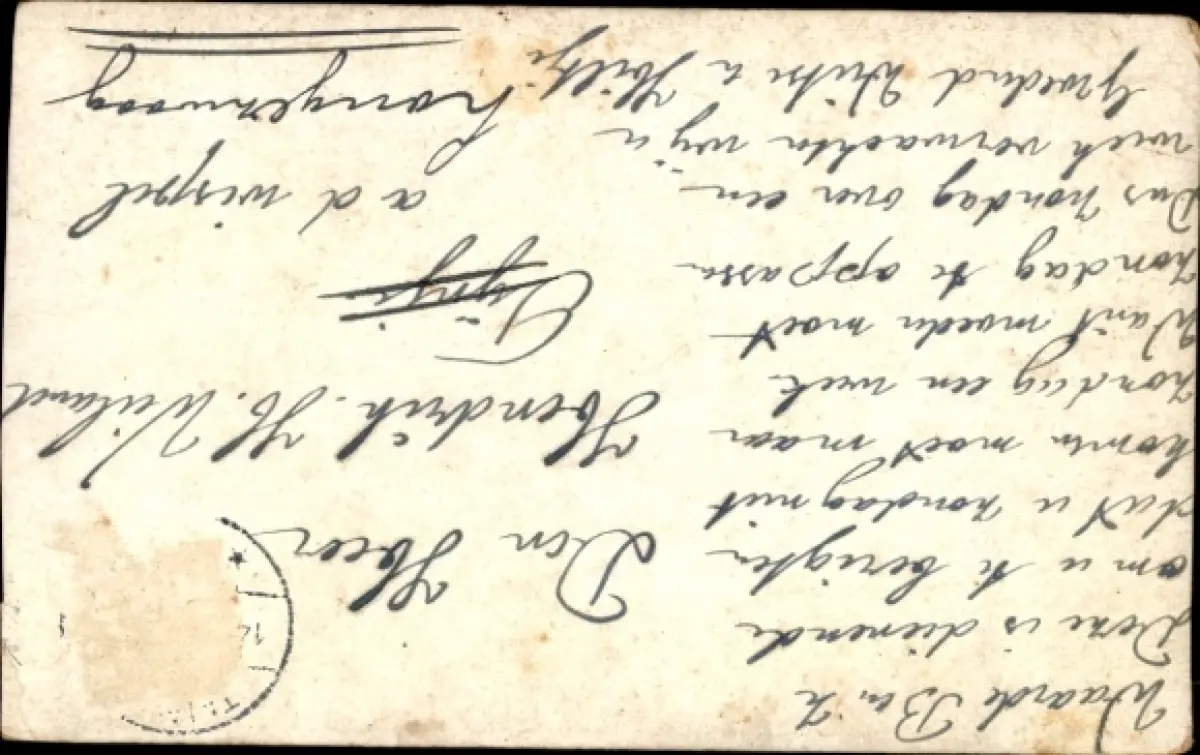 Waarde B en Z
Deze is dienende
om u te berigten
dat u zondag niet
komen moet maar
zondag een week
Want moeder moet
zondag te oppassen
Dus zondag over een
week verwachten wij u
Gegroet
Den Heer
Hendrik. H. Weiland
a d wispel
Langezwaag